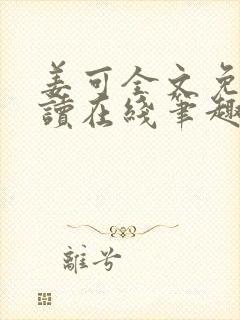 姜可全文免
讀在綫筆趣
離兮